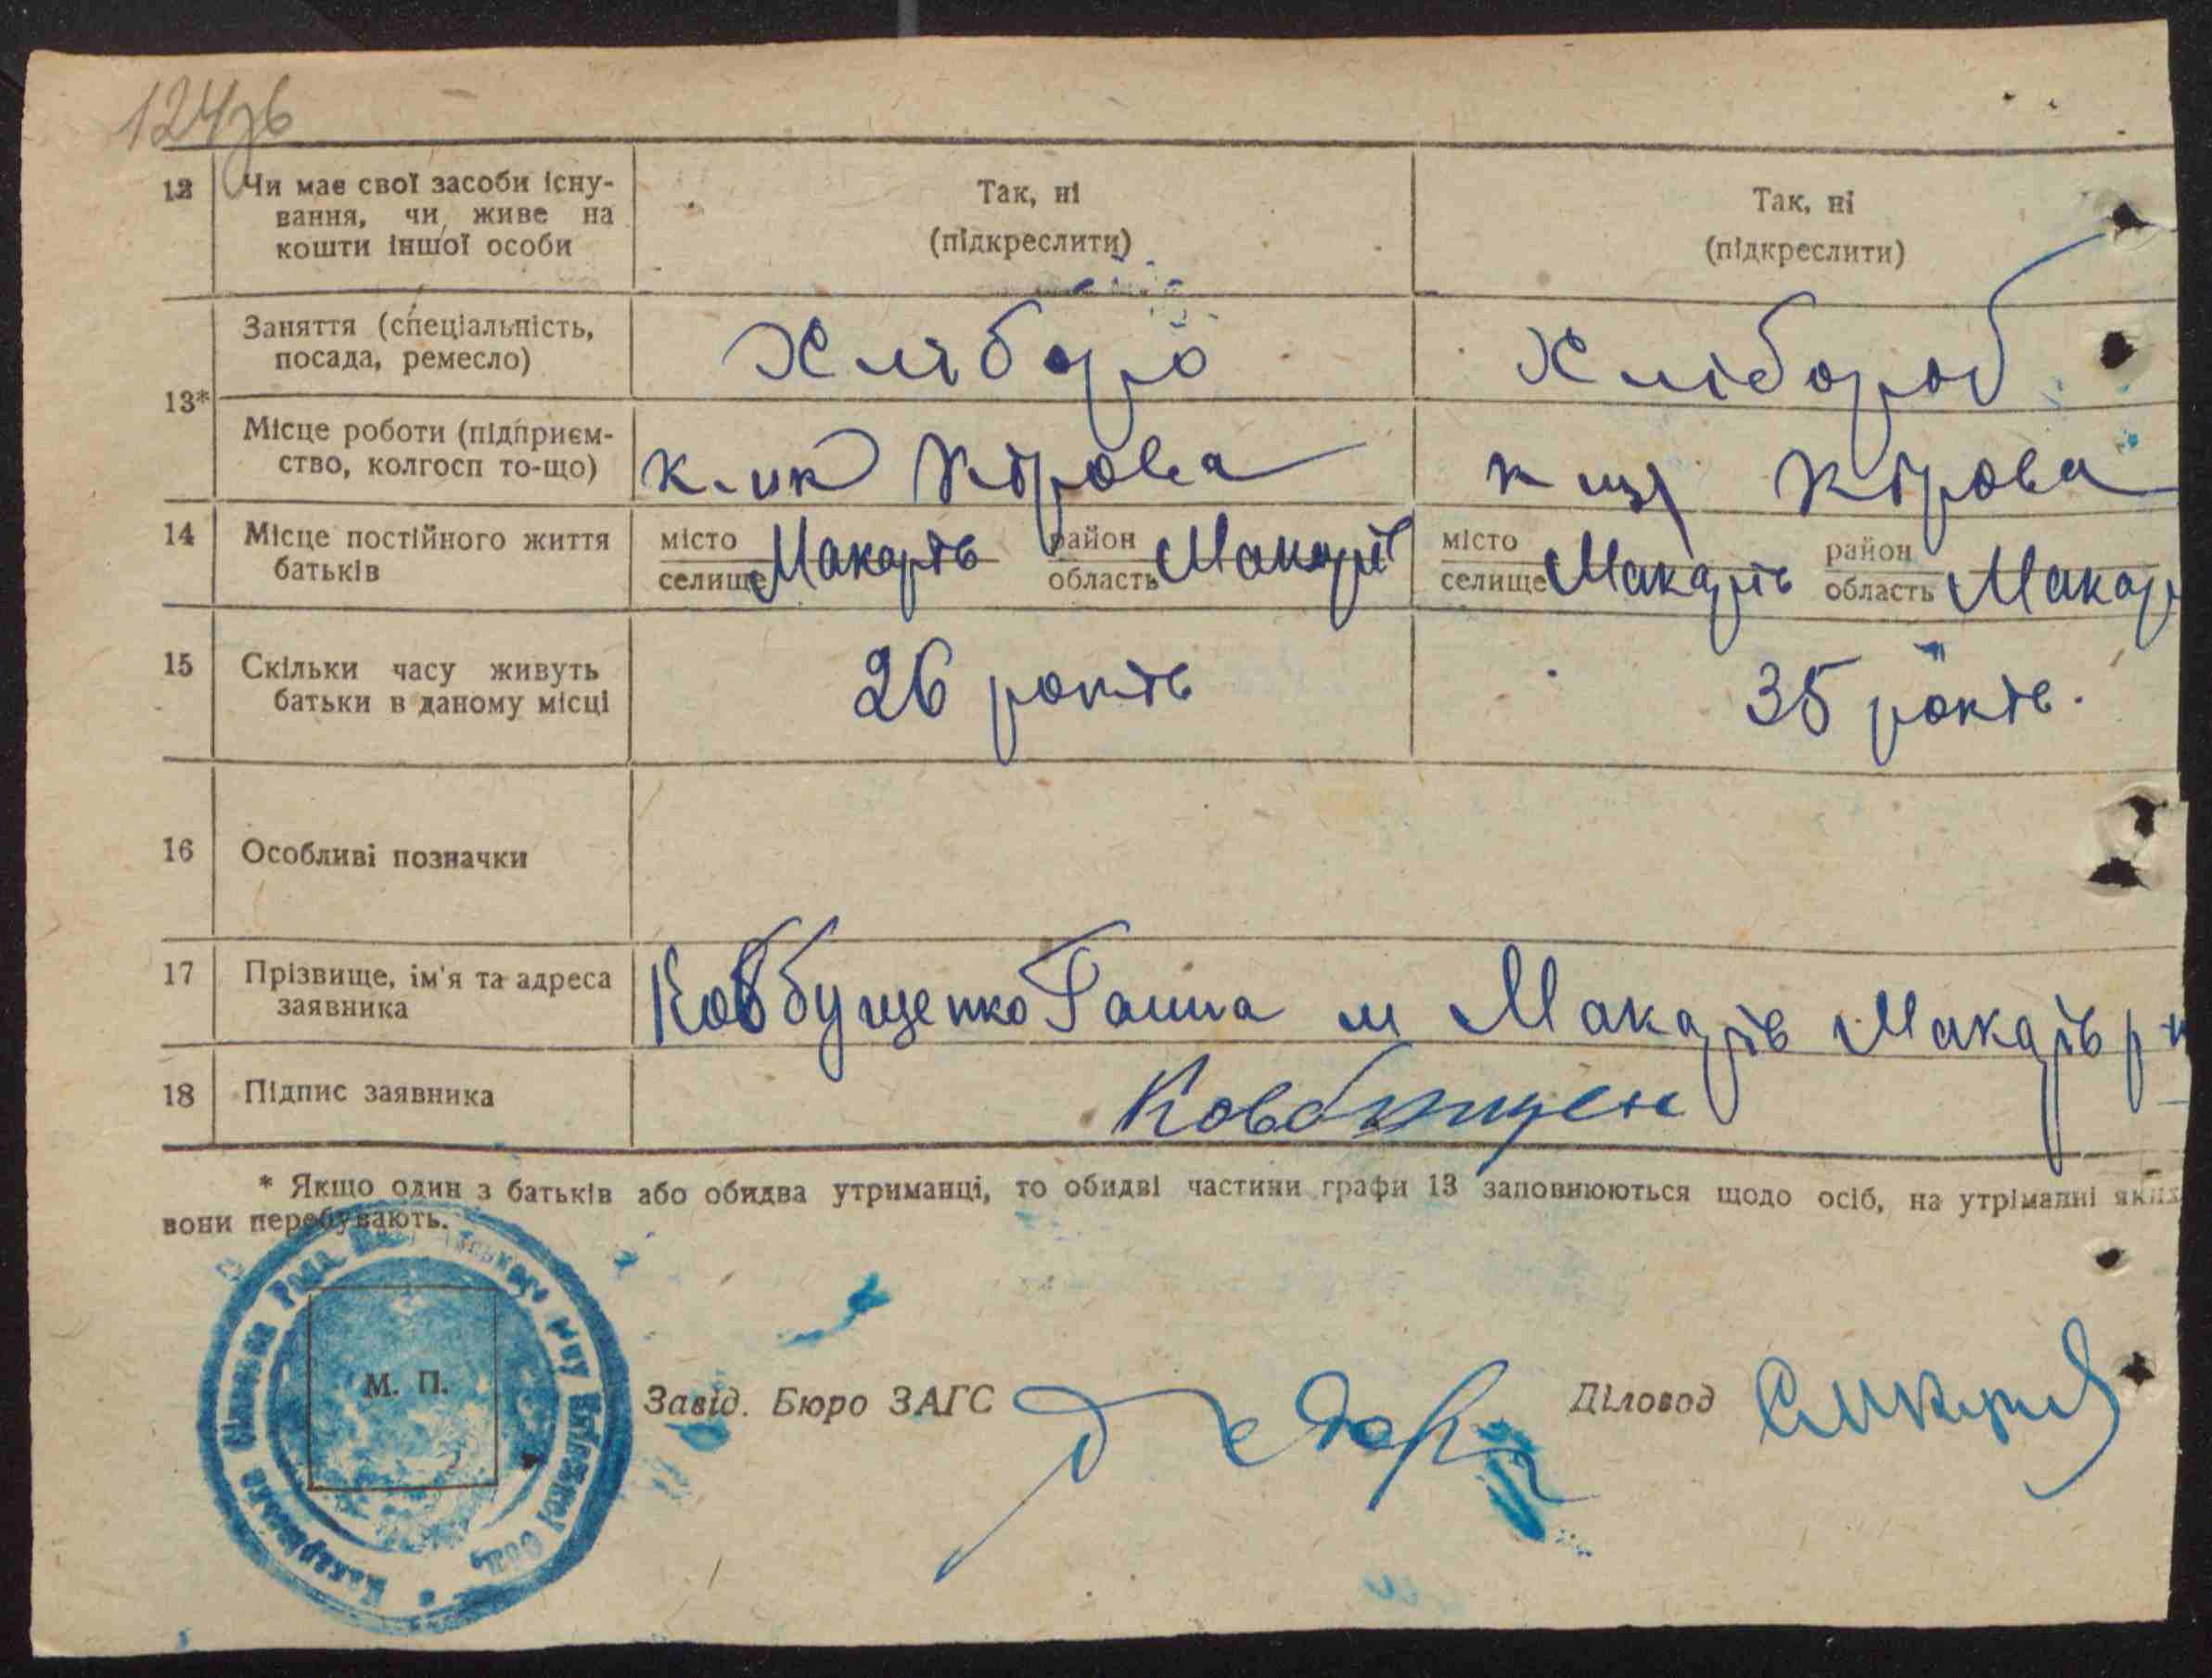 124зв
12 Чи має свої засоби існу- Так, ні Так, ні
вання, чи живе на (підкреслити) (підкреслити)
кошти іншої особи
13* Заняття (спеціальність, Хлібороб Хлібороб
посада, ремесло)
Місце роботи (підприєм- Кірова Кірова
ство, колгосп то-що)
14 Місце постійного життя місто Макарів район Макарів місто Макарів район Макар
батьків селище область селище область
15 Скільки часу живуть 26 років 35 років.
батьки в даному місці
16 Особливі позначки
17 Прізвище, ім'я та адреса Ковбущенко Ганна м Макарів Макарів р н
заявника
18 Підпис заявника Ковбущен
* Якщо один з батьків або обидва утриманці, то обидві частини графи 13 заповнюються щодо осіб, на утріманні яких
вони перебувають.
Макарівська Селищна Рада р-ну Київської Обл.
М. П.
Завід. Бюро ЗАГС Діловод